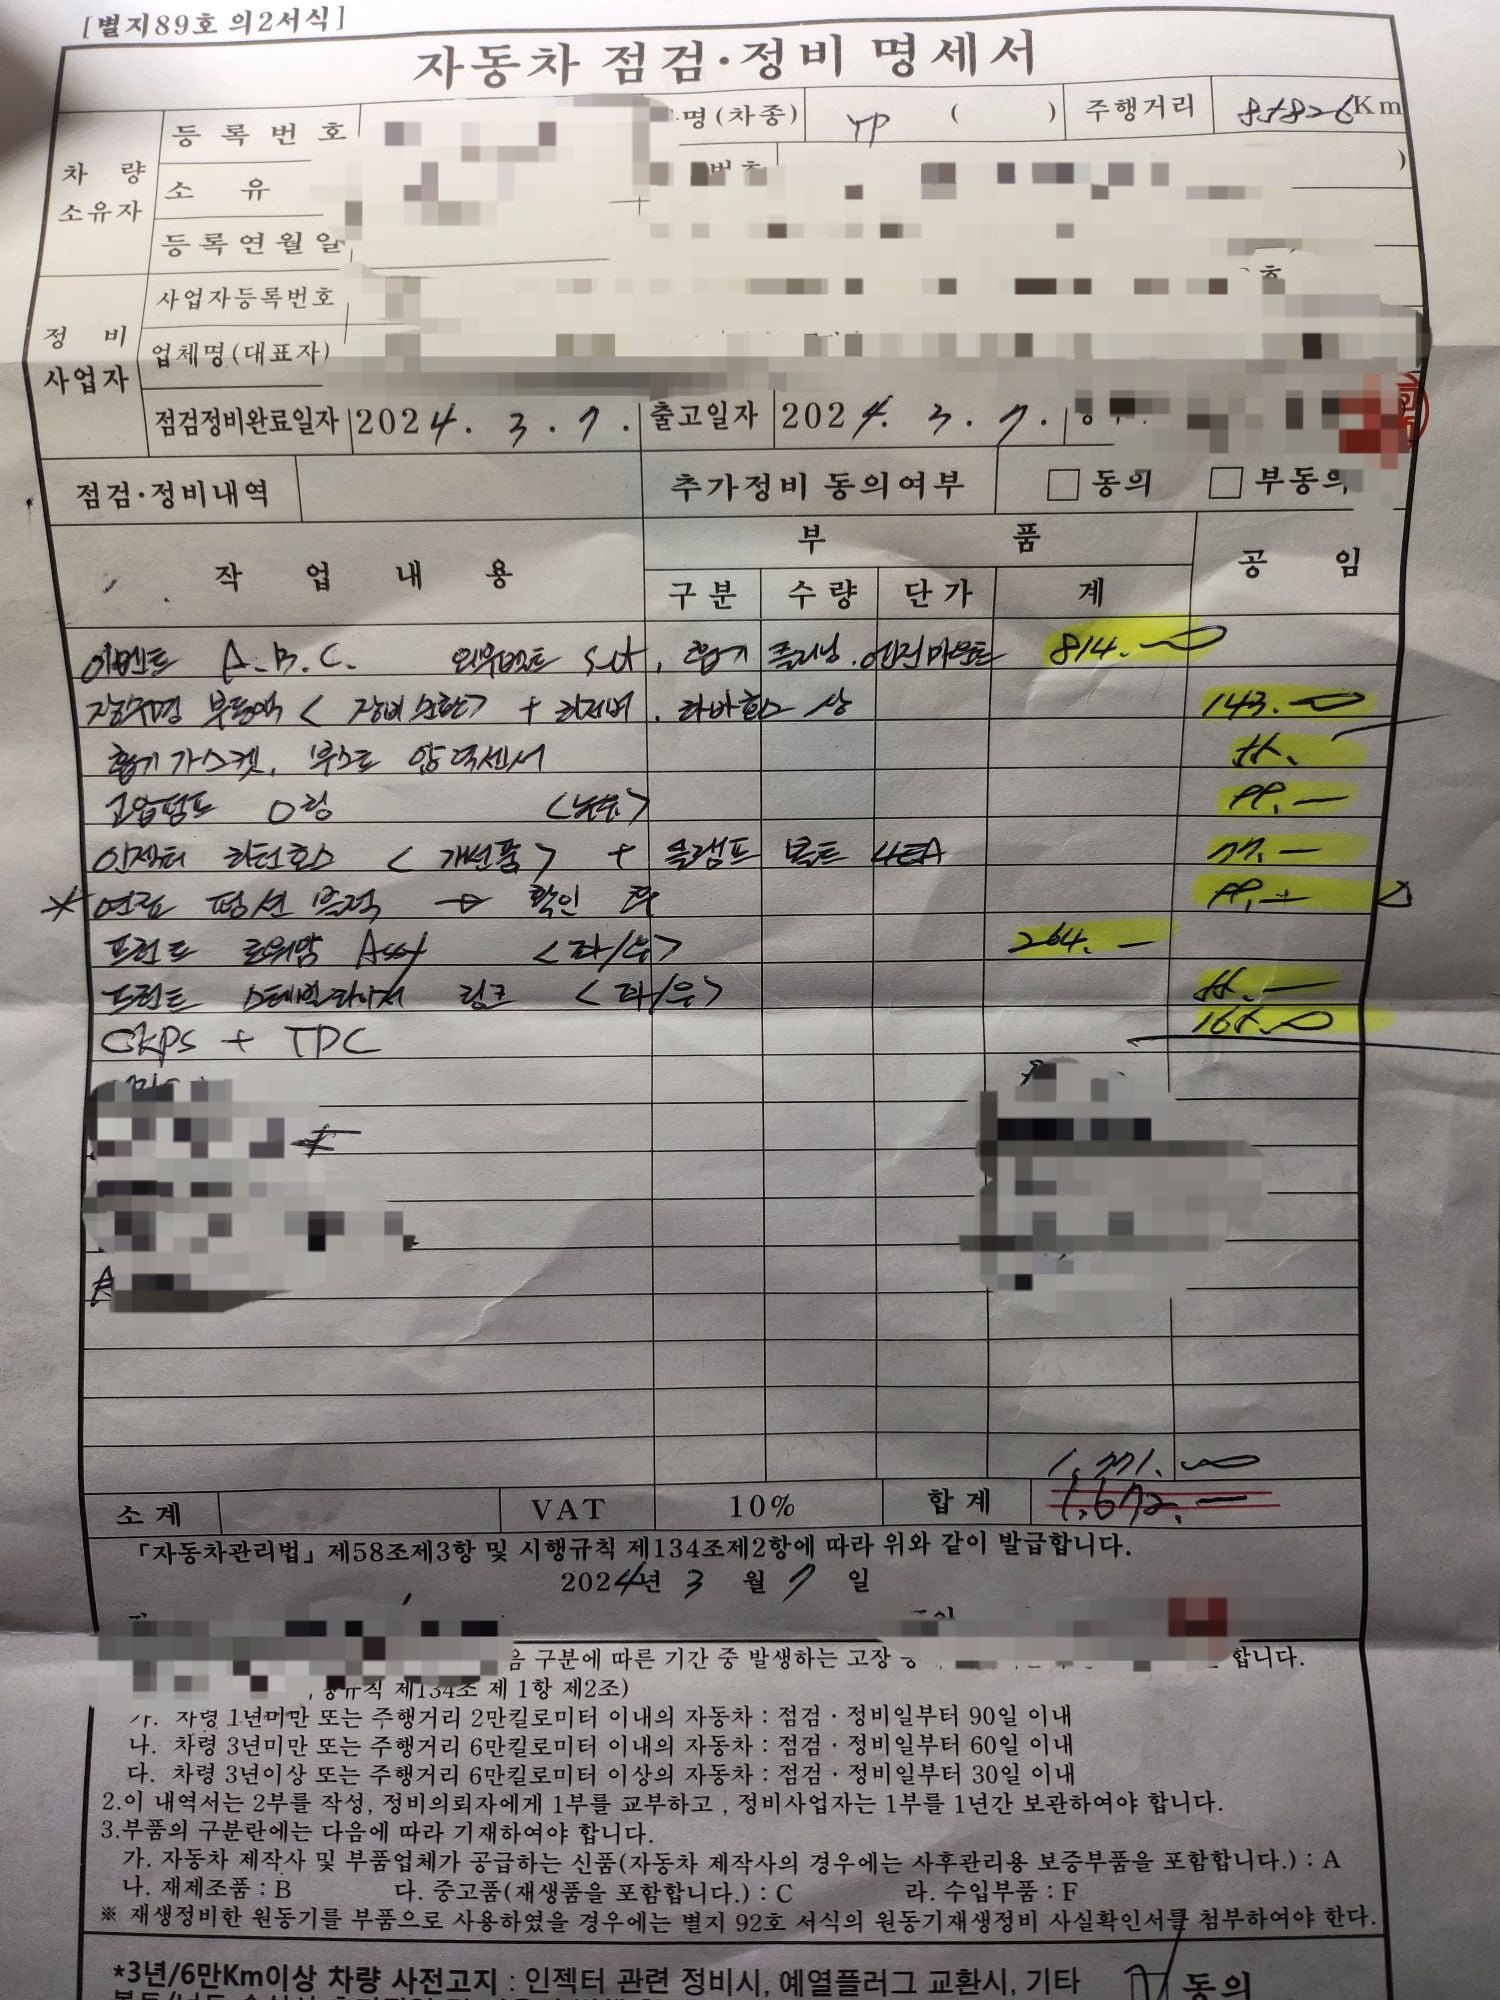 [별지89호 의2서식]
자동차 점검·정비 명세서
차량 소유자
등록번호 명(차종) YP ( ) 주행거리 85826Km
소유 번호 )
등록연월일
정비 사업자
사업자등록번호
업체명(대표자)
점검정비완료일자 2024. 3. 7. 출고일자 2024. 3. 7.
점검·정비내역 추가정비 동의여부 □ 동의 □ 부동의
작업내용 부품 공임
구분 수량 단가 계
이벤트 A.B.C. 외부벨트 Set, 흡기 클리닝, 엔진마운트 814.
부동액 <장비순환> + 리저버. 라바호스 상 143.
흡기가스켓, 부스트 압력센서 55.
고압펌프 O링 <누유> 99.
인젝터 리턴호스 <개선품> + 클램프 볼트 4EA 77.
* 연료 → 확인 99.
프런트 로워암 Assy <좌/우> 264.
프런트 스테빌라이저 링크 <좌/우> 55.
CKPS + TDC 165.
1,771.
소계 VAT 10% 합계 1,672.
「자동차관리법」제58조제3항 및 시행규칙 제134조제2항에 따라 위와 같이 발급합니다.
2024년 3 월 7 일
음 구분에 따른 기간 중 발생하는 고장 합니다.
제134조 제 1항 제2조)
가. 차령 1년미만 또는 주행거리 2만킬로미터 이내의 자동차 : 점검 · 정비일부터 90일 이내
나. 차령 3년미만 또는 주행거리 6만킬로미터 이내의 자동차 : 점검 · 정비일부터 60일 이내
다. 차령 3년이상 또는 주행거리 6만킬로미터 이상의 자동차 : 점검 · 정비일부터 30일 이내
2.이 내역서는 2부를 작성, 정비의뢰자에게 1부를 교부하고 , 정비사업자는 1부를 1년간 보관하여야 합니다.
3.부품의 구분란에는 다음에 따라 기재하여야 합니다.
가. 자동차 제작사 및 부품업체가 공급하는 신품(자동차 제작사의 경우에는 사후관리용 보증부품을 포함합니다.) : A
나. 재제조품 : B 다. 중고품(재생품을 포함합니다.) : C 라. 수입부품 : F
※ 재생정비한 원동기를 부품으로 사용하였을 경우에는 별지 92호 서식의 원동기재생정비 사실확인서를 첨부하여야 한다.
*3년/6만Km이상 차량 사전고지 : 인젝터 관련 정비시, 예열플러그 교환시, 기타 동의